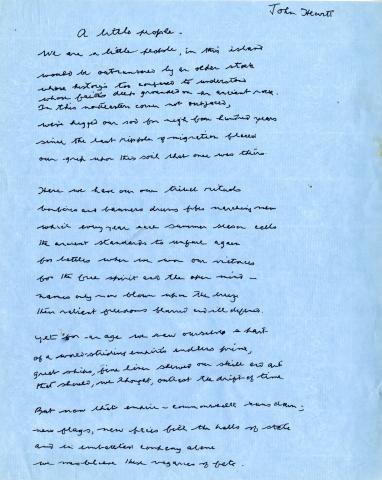 John Hewitt
A little people.
We are a little people, in this island
would be outnumbered by an older stock
whose history's too confused to understand
whose faith's deep grounded on an ancient rock.
In this northeastern corner not outpaced,
we've hugged our sod for nigh four hundred years
since the last ripple of migration placed
our grip upon this soil that once was theirs.
Here we have our own tribal rituals
banners and drums fifes marching men
which every year when summer season calls
the ancient standards to unfurl again
for battles when we won our victories
for the free spirit and the open mind —
names only now blown upon the breeze
their salient freedoms blurred and ill defined.
Yet for an age we saw ourselves a part
of a world-striding empire's endless prime,
great ships, fine linen showed our skill and art
that should, we thought, outlast the drift of time.
But now that empire — commonwealth runs down;
new flags, new faces fill the halls of state
and in embattled company alone
we these vagaries of fate.